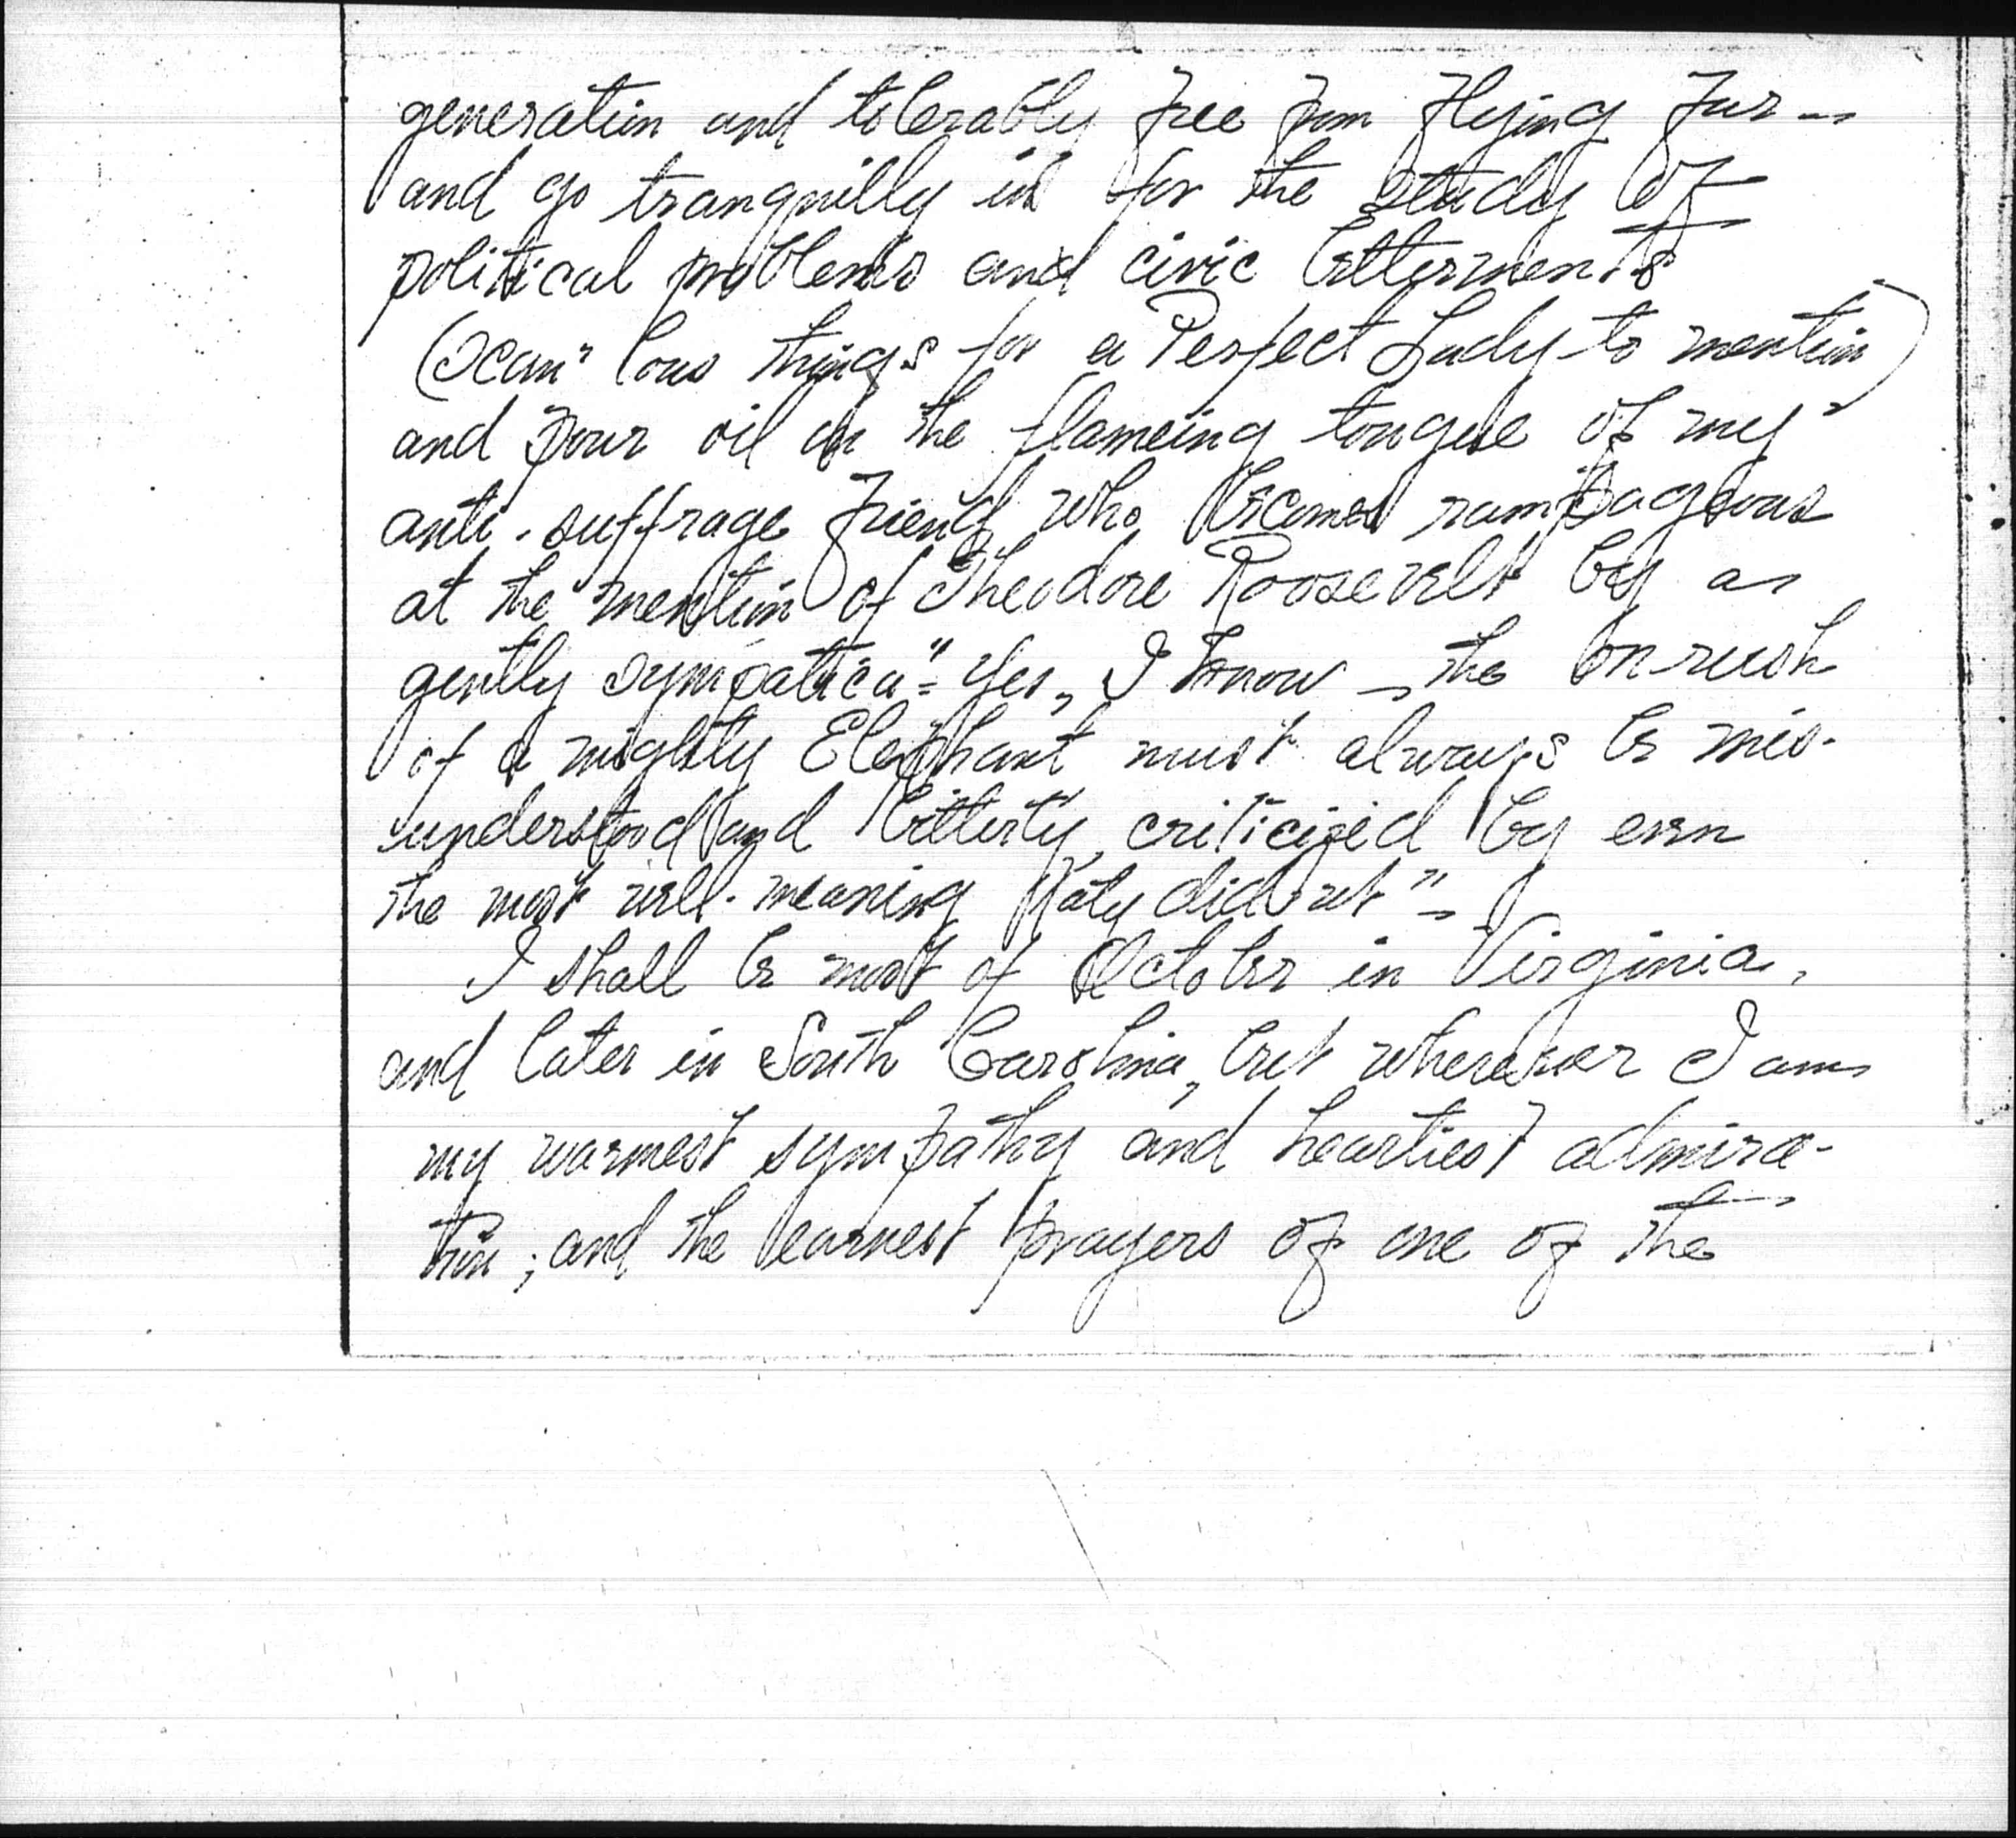 generation and tolerably free from flying fur —
and go tranquilly in for the study of
political problems and civic betterments
(Scan'lous things for a Perfect Lady to mention)
and pour oil on the flameing tongue of my
anti-suffrage friend who becomes rampageous
at the mention of Theodore Roosevelt by a
gently sympatica "Yes, I know — the on-rush
of a mighty Elephant must always be mis-
understood and bitterly criticized by even
the most well-meaning Katy did n't" —
I shall be most of October in Virginia,
and later in South Carolina, but wherever I am
my warmest sympathy and heartiest admira-
tion; and the earnest prayers of one of the